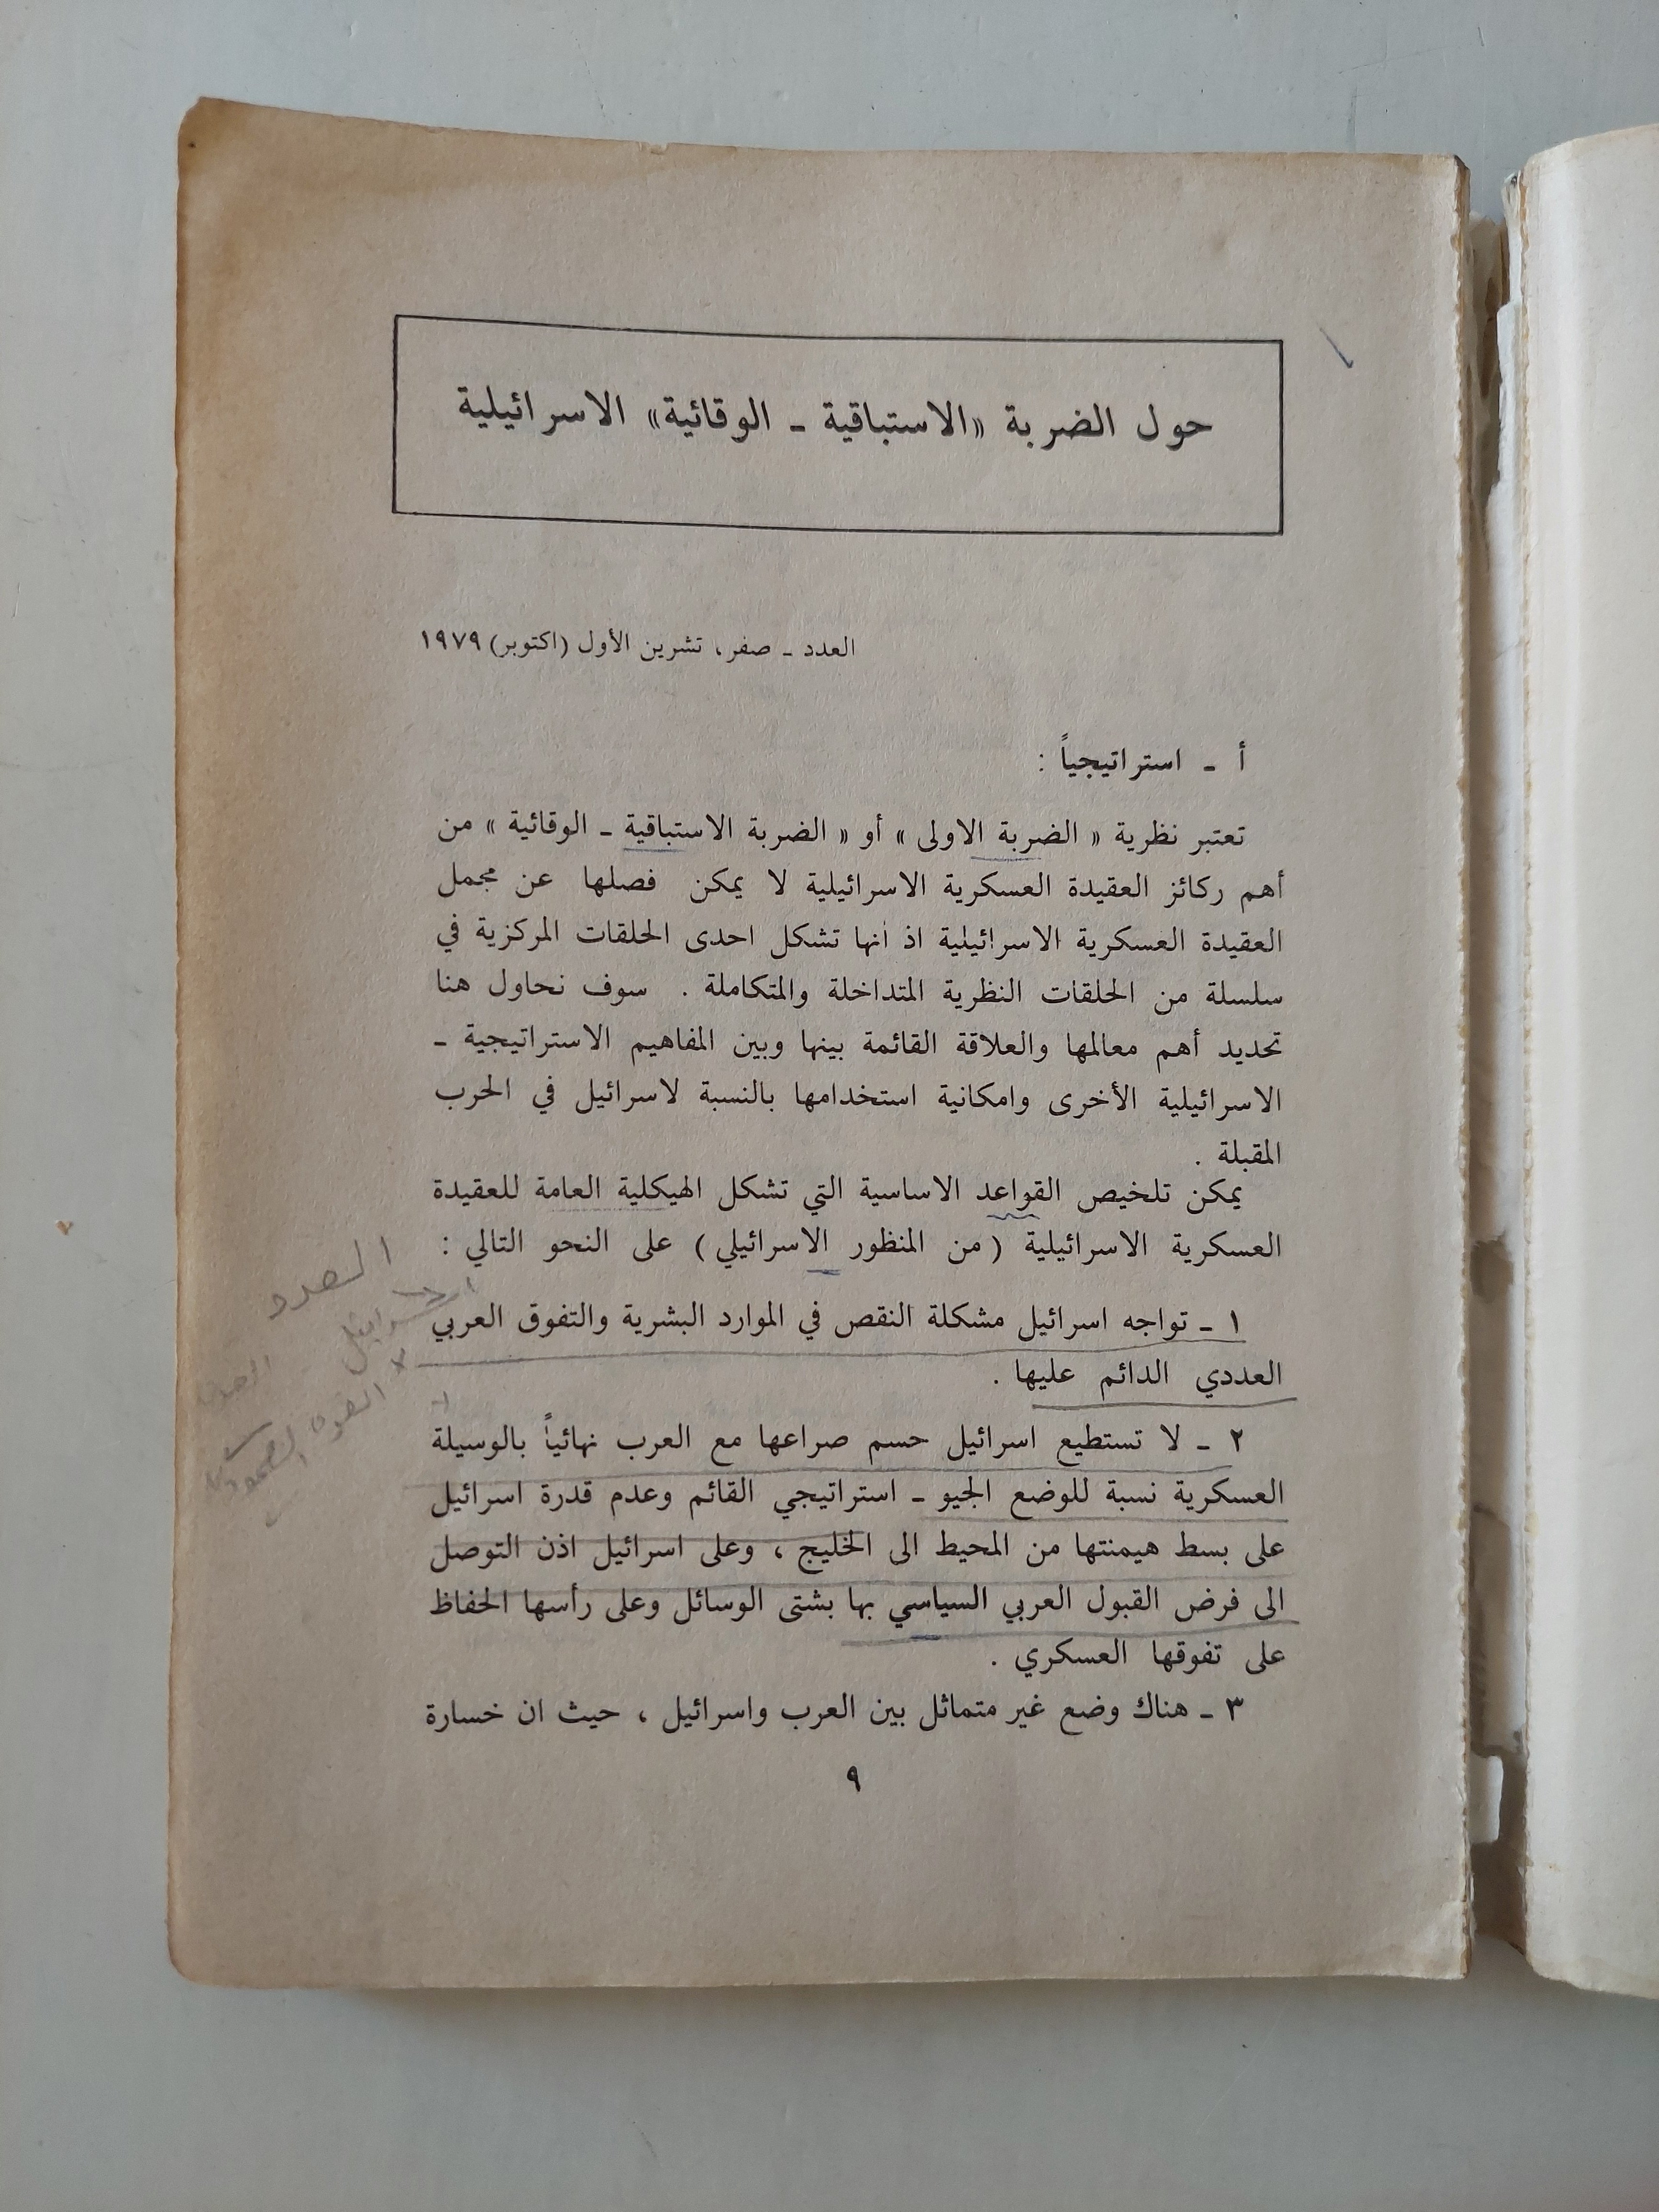 حول الضربة «الاستباقية ـ الوقائية» الاسرائيلية
العدد ـ صفر، تشرين الأول (اكتوبر) ١٩٧٩
أ ـ استراتيجياً :
تعتبر نظرية « الضربة الاولى » أو « الضربة الاستباقية ـ الوقائية » من
أهم ركائز العقيدة العسكرية الاسرائيلية لا يمكن فصلها عن مجمل
العقيدة العسكرية الاسرائيلية اذ انها تشكل احدى الحلقات المركزية في
سلسلة من الحلقات النظرية المتداخلة والمتكاملة . سوف نحاول هنا
تحديد أهم معالمها والعلاقة القائمة بينها وبين المفاهيم الاستراتيجية ـ
الاسرائيلية الأخرى وامكانية استخدامها بالنسبة لاسرائيل في الحرب
المقبلة .
يمكن تلخيص القواعد الاساسية التي تشكل الهيكلية العامة للعقيدة
العسكرية الاسرائيلية ( من المنظور الاسرائيلي ) على النحو التالي :
١ ـ تواجه اسرائيل مشكلة النقص في الموارد البشرية والتفوق العربي
العددي الدائم عليها .
٢ ـ لا تستطيع اسرائيل حسم صراعها مع العرب نهائياً بالوسيلة
العسكرية نسبة للوضع الجيو ـ استراتيجي القائم وعدم قدرة اسرائيل
على بسط هيمنتها من المحيط الى الخليج ، وعلى اسرائيل اذن التوصل
الى فرض القبول العربي السياسي بها بشتى الوسائل وعلى رأسها الحفاظ
على تفوقها العسكري .
٣ ـ هناك وضع غير متماثل بين العرب واسرائيل ، حيث ان خسارة
٩